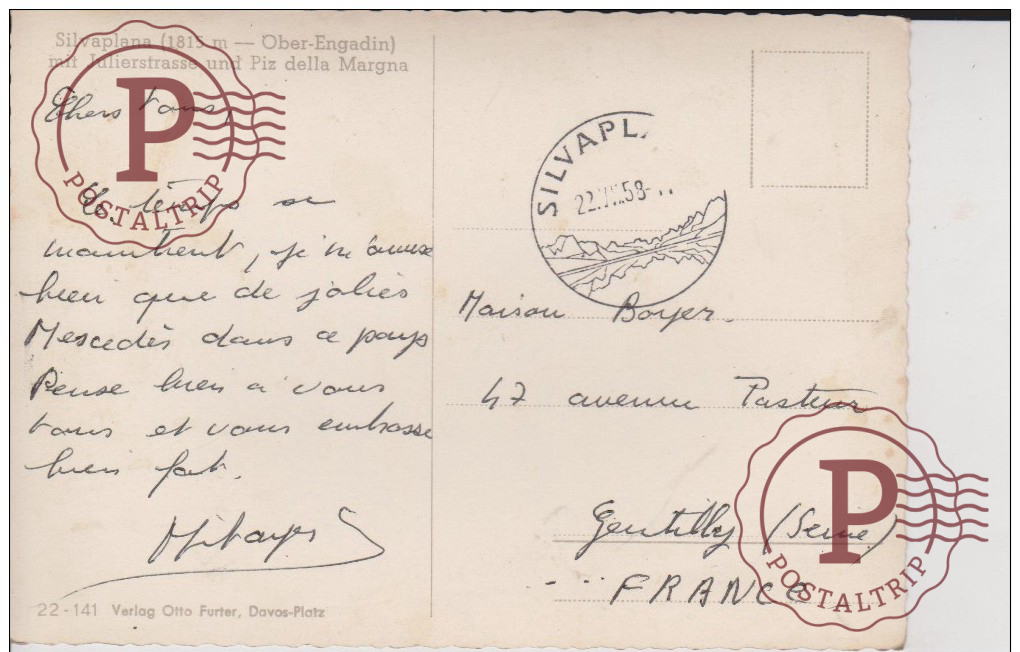 Silvaplana (1815 m — Ober-Engadin)
mit Julierstrasse und Piz della Margna
Chers tous,
Le temps se
maintient, je m'amuse
bien que de jolies
Mercedès dans ce pays
Pense bien à vous
tous et vous embrasse
bien fort.
22-141 Verlag Otto Furter, Davos-Platz
SILVAPLA
22.VII.58-
Maison Boyer.
47 avenue Pasteur
Gentilly (Seine)
FRANCE
P
POSTALTRIP
P
POSTALTRIP